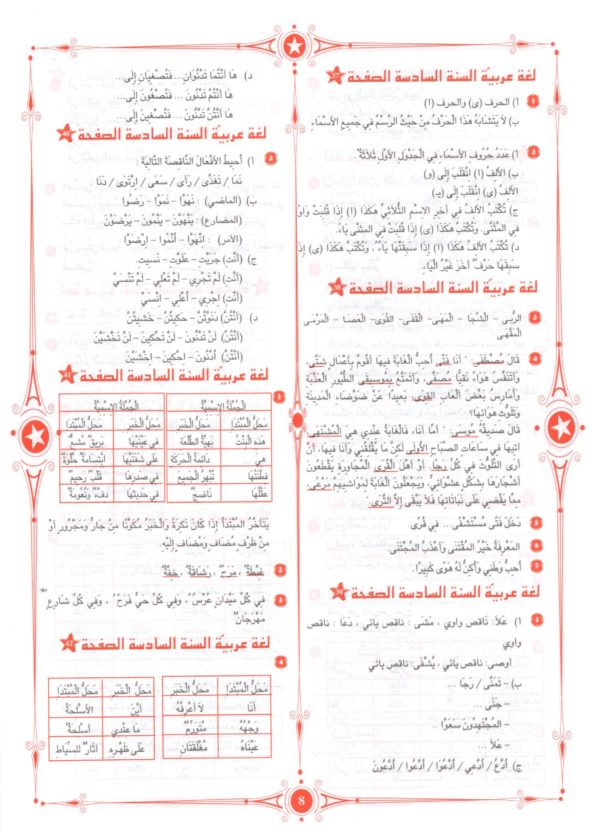 لغة عربية السنة السادسة الصفحة
1 أ) الحرف (ى) والحرف (ا)
ب) لاَ يَتَشَابَهُ هَذَا الْحَرْفُ مِنْ حَيْثُ الرَّسْمُ فِي جَمِيعِ الأَسْمَاءِ.
2 أ) عَدَدُ حُرُوفِ الأَسْمَاءِ فِي الْجَدْوَلِ الأَوَّلِ ثَلاَثَةٌ
ب) الأَلِفُ (ا) اِنْقَلَبَ إِلَى (و)
الأَلِفُ (ى) اِنْقَلَبَ إِلَى (يـ)
ج) تُكْتَبُ الأَلِفُ فِي آخِرِ الاِسْمِ الثُّلاَثِيِّ هَكَذَا (ا) إِذَا قُلِبَتْ وَاوً
فِي الْمُثَنَّى. وَتُكْتَبُ هَكَذَا (ى) إِذَا قُلِبَتْ فِي الْمُثَنَّى يَاءً.
د) تُكْتَبُ الأَلِفُ هَكَذَا (ا) إِذَا سَبَقَتْهَا يَاءٌ، وَتُكْتَبُ هَكَذَا (ى) إِذَا
سَبِقَهَا حَرْفٌ آخَرَ غَيْرُ الْيَاءِ.
لغة عربية السنة السادسة الصفحة
3 الرُّبَى – الشَّجَا – الْمَهَى – الْقَفَى – الْقُوَى – الْعَصَا – الْمَرْسَى
الْمَقْهَى
4 قَالَ مُصْطَفَى: "أَنَا فَتًى أُحِبُّ الْغَابَةَ فِيهَا أَقُومُ بِأَعْمَالٍ شَتَّى،
وَأَتَنَفَّسُ هَوَاءً نَقِيًّا مُصَفًّى، وَأَتَمَتَّعُ بِمُوسِيقَى الطُّيُورِ الْعَذْبَةِ
وَأُمَارِسُ بَعْضَ أَلْعَابِ الْقِوَى بَعِيدًا عَنْ ضَوْضَاءِ الْمَدِينَةِ
وَتَلَوُّثِ هَوَائِهَا"؟
قَالَ صَدِيقُهُ مُوسَى: "أَمَّا أَنَا، فَالْغَابَةُ عِنْدِي هِيَ الْمُشْتَهَى:
آتِيهَا فِي سَاعَاتِ الصَّبَاحِ الأُولَى لَكِنْ مَا يُقْلِقُنِي وَأَنَا فِيهَا، أَنْ
أَرَى التَّلَوُّثَ فِي كُلِّ رَجَا. أَوْ أَهْلَ الْقُرَى الْمُجَاوِرَةِ يَقْطَعُونَ
أَشْجَارَهَا بِشَكْلٍ عَشْوَائِيٍّ وَيَجْعَلُونَ الْغَابَةَ لِمَوَاشِيهِمْ مَرْعًى،
مِمَّا يَقْضِي عَلَى نَبَاتَاتِهَا فَلاَ يَبْقَى إِلاَّ الثَّرَى."
5 دَخَلَ فَتًى مُسْتَشْفًى... فِي قُرًى.
6 الْمَعْرِفَةُ خَيْرُ الْمُقْتَنَى وَأَعْذَبُ الْمُجْتَنَى.
7 أُحِبُّ وَطَنِي وَأَكِنُّ لَهُ هَوًى كَبِيرًا.
لغة عربية السنة السادسة الصفحة
1 أ) عَلاَ: نَاقِص وَاوِي، مَشَى: نَاقِص يَائِي، دَعَا: نَاقِص
وَاوِي
أَوْصَى: نَاقِص يَائِي، يُشْفَى: نَاقِص يَائِي
ب) – تَمَنَّى / رَجَا ...
– جَنَّى ...
– الْمُجْتَهِدُونَ سَعَوْا ..
– عَلاَ ..
ج) أُدْعُ / أُدْعِي / أُدْعُوَا / أُدْعُوا / أُدْعُونَ
د) هَا أَنْتُمَا تَدْنُوَانِ... فَتُصْغِيَانِ إِلَى...
هَا أَنْتُمْ تَدْنُونَ... فَتُصْغُونَ إِلَى...
هَا أَنْتُنَّ تَدْنُونَ... فَتُصْغِينَ إِلَى...
لغة عربية السنة السادسة الصفحة
2 أ) أُحِيطُ الأَفْعَالَ النَّاقِصَةَ التَّالِيَةَ:
نَمَا / تَغَدَّى / رَأَى / سَعَى / اِرْتَوَى / دَنَا:
ب) (الماضي): نَهَوْا – نَمَوْا – رَضُوا
(المضارع): يَنْهَوْنَ – يَنْمُونَ – يَرْضَوْنَ
(الأمر): اِنْهَوْا – اُنْمُوا – اِرْضَوْا
ج) (أَنْتَ) جَرَيْتَ – عَلَوْتَ – نَسِيتَ.
(أَنْتِ) لَمْ تَجْرِي – لَمْ تَعْلِي – لَمْ تَنْسَيْ
(أَنْتِ) اِجْرِي – اُعْلِي – اِنْسَيْ
د) (أَنْتُنَّ) دَنَوْتُنَّ – حَكَيْتُنَّ – خَشِيتُنَّ
(أَنْتُنَّ) لَنْ تَدْنُونَ – لَنْ تَحْكِينَ – لَنْ تَخْشَيْنَ
(أَنْتُنَّ) اُدْنُونَ – اِحْكِينَ – اخْشَيْنَ
لغة عربية السنة السادسة الصفحة
1 الْجُمْلَةُ الاِسْمِيَّةُ | الْجُمْلَةُ الاِسْمِيَّةُ
مَحَلُّ الْمُبْتَدَأِ | مَحَلُّ الْخَبَرِ | مَحَلُّ الْخَبَرِ | مَحَلُّ الْمُبْتَدَأِ
هَذِهِ الْبِنْتُ | بَهِيَّةُ الطَّلْعَةِ | فِي عَيْنَيْهَا | بَرِيقٌ مُشِعٌّ
هِيَ | دَائِمَةُ الْحَرَكَةِ | عَلَى شَفَتَيْهَا | اِبْتِسَامَةٌ حُلْوَةٌ
فِطْنَتُهَا | تُبْهِرُ الْجَمِيعَ | فِي صَدْرِهَا | قَلْبٌ رَحِيمٌ
عَقْلُهَا | نَاضِجٌ | فِي حَدِيثِهَا | دِفْءٌ وَنُعُومَةٌ
يَتَأَخَّرُ الْمُبْتَدَأُ إِذَا كَانَ نَكِرَةً وَالْخَبَرُ مُكَوَّنًا مِنْ جَارٍّ وَمَجْرُورٍ أَوْ
مِنْ ظَرْفٍ مُضَافٍ وَمُضَافٍ إِلَيْهِ.
2 غِبْطَةٌ، مَرَحٌ، رَشَاقَةٌ، خِفَّةٌ
3 فِي كُلِّ مَيْدَانٍ عُرْسٌ، وَفِي كُلِّ حَيٍّ فَرَحٌ، وَفِي كُلِّ شَارِعٍ
مَهْرَجَانٌ
لغة عربية السنة السادسة الصفحة
4
مَحَلُّ الْمُبْتَدَأِ | مَحَلُّ الْخَبَرِ | مَحَلُّ الْخَبَرِ | مَحَلُّ الْمُبْتَدَأِ
أَنَا | لاَ أَعْرِفُهُ | أَيْنَ | الأَسْلِحَةُ
وَجْهُهُ | مُتَوَرِّمٌ | مَا عِنْدِي | أَسْلِحَةٌ
عَيْنَاهُ | مُغْلَقَتَانِ | عَلَى ظَهْرِهِ | آثَارٌ لِلسِّيَاطِ
8